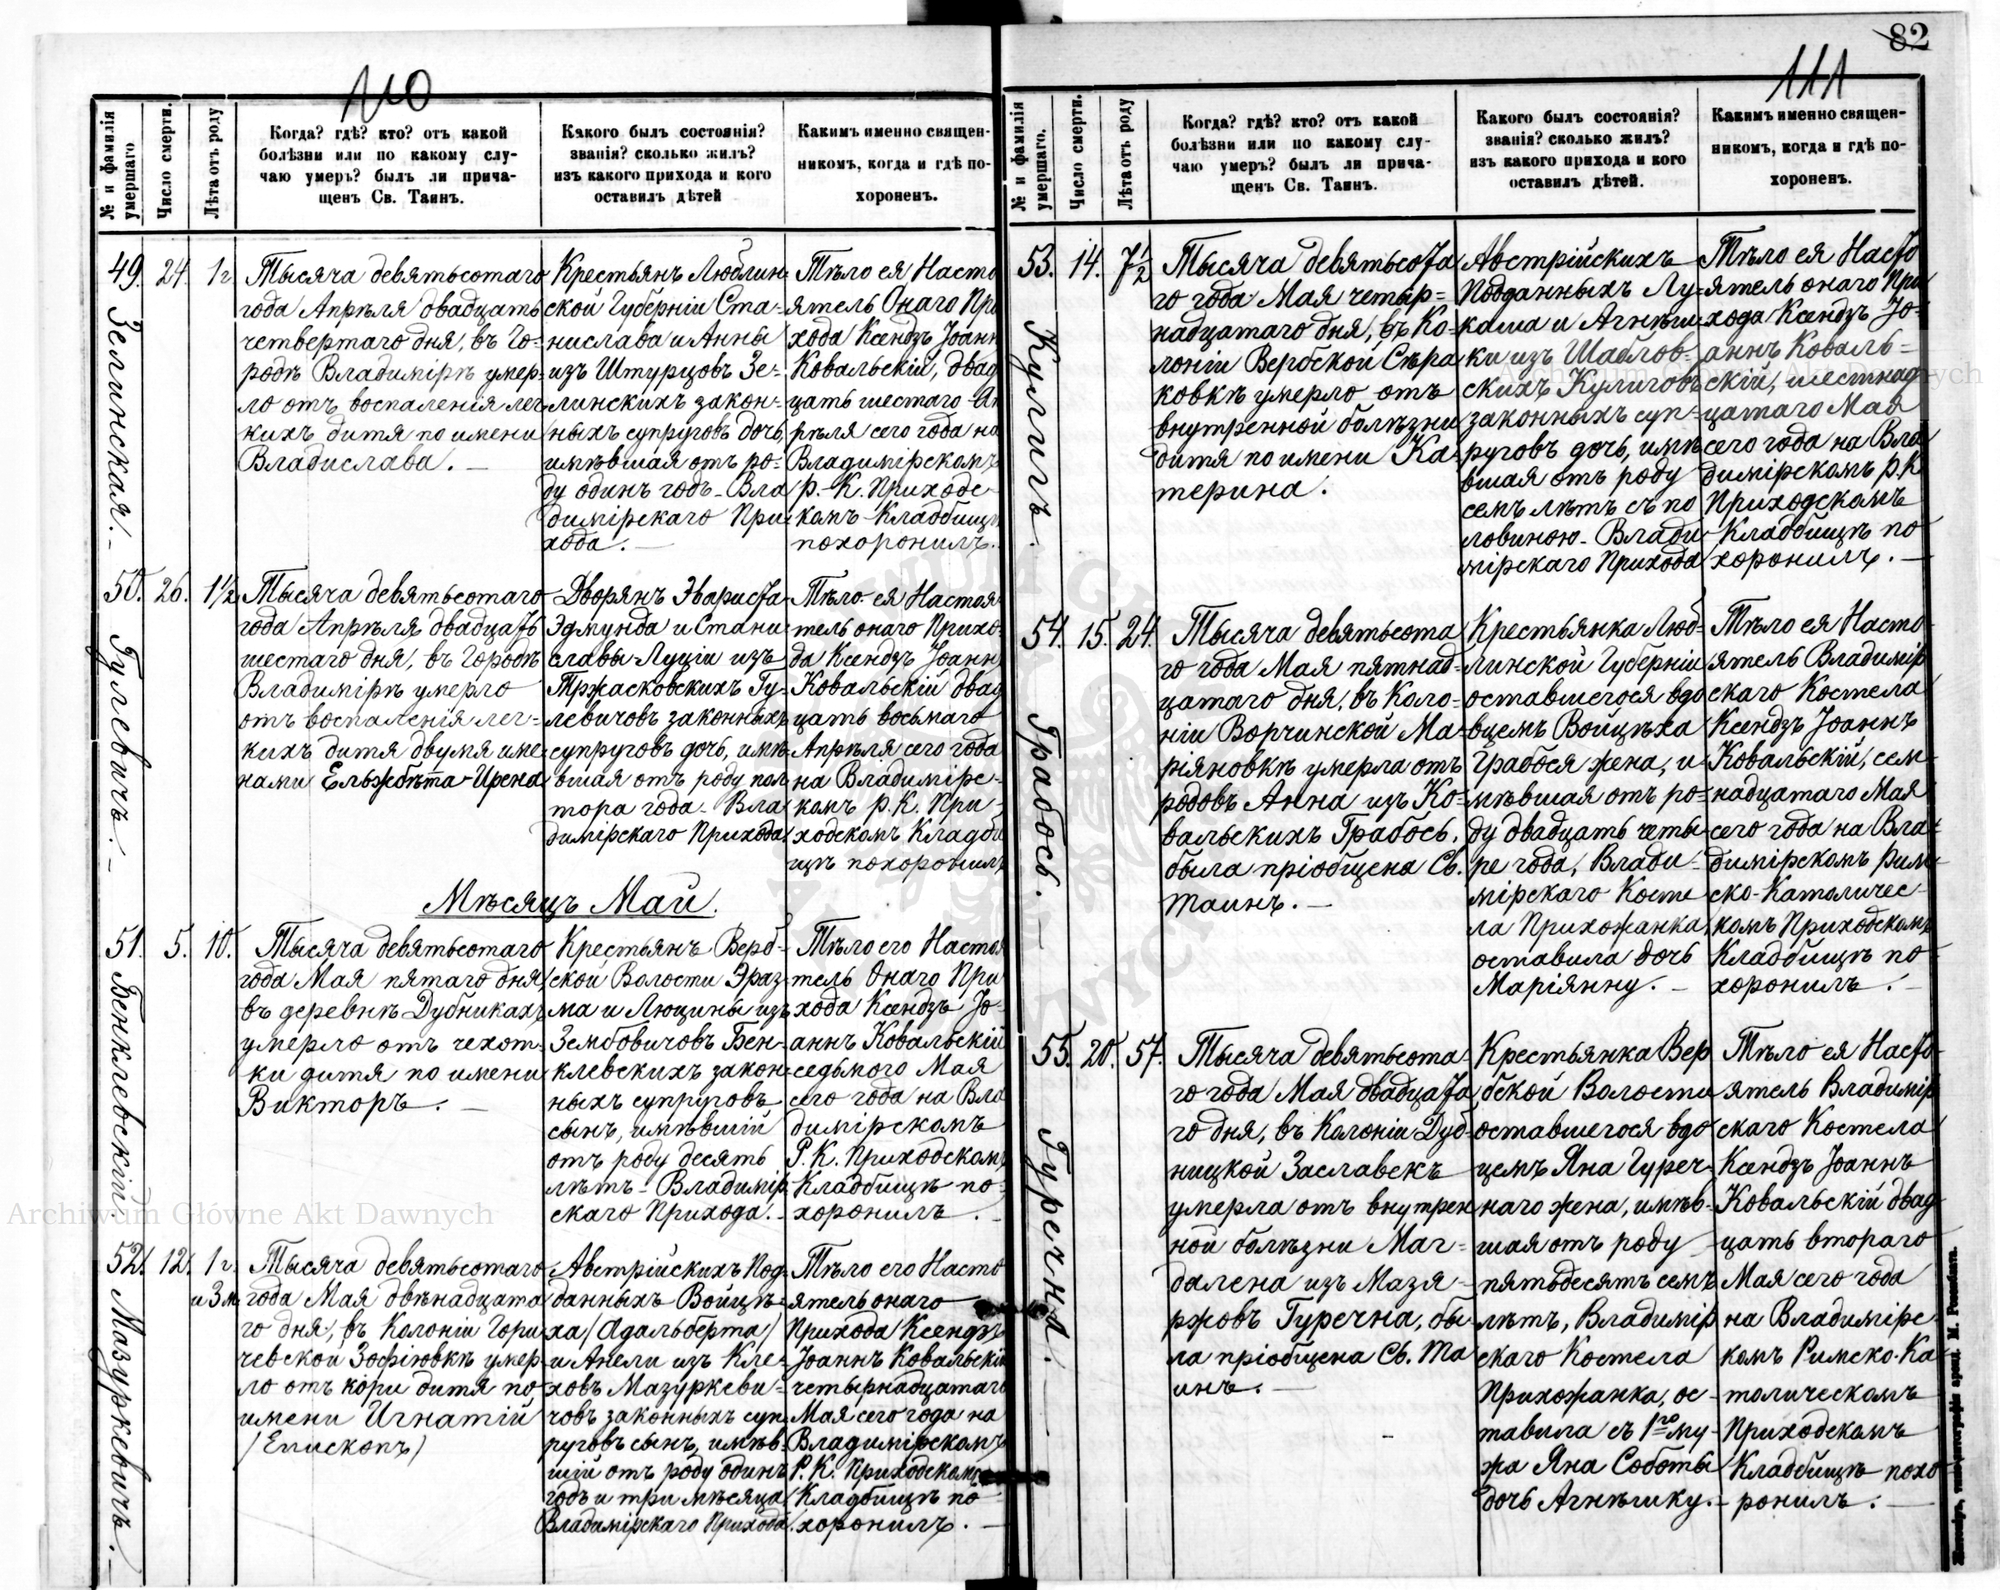 82
110
111
№ и фамилія умершаго.
Число смерти.
Лѣта отъ роду
Когда? гдѣ? кто? отъ какой
болѣзни или по какому слу-
чаю умеръ? былъ ли прича-
щенъ Св. Таинъ.
Какого былъ состоянія?
званія? сколько жилъ?
изъ какого прихода и кого
оставилъ дѣтей
Какимъ именно священ-
никомъ, когда и гдѣ по-
хороненъ.
49.
Зелинская.
24.
1 г
Тысяча девятьсотаго
года Апрѣля двадцать
четвертаго дня, въ Го-
родѣ Владимірѣ умер-
ло отъ воспаленія лег
кихъ дитя по имени
Владислава. —
Крестьянъ Люблин-
ской Губерніи Ста-
нислава и Анны
изъ Штурцовъ Зе-
линскихъ закон-
ныхъ супруговъ дочь,
имѣвшая отъ ро-
ду одинъ годъ - Вла
димірскаго При
хода. —
Тѣло ея Насто
ятель Онаго При
хода Ксендзъ Іоанн
Ковальскій, двад
цать шестаго Ап
рѣля сего года на
Владимірскомъ
р. К. Приходс
комъ Кладбищѣ
похоронилъ.
50.
Гулевичъ.
26.
1½
Тысяча девятьсотаго
года Апрѣля двадцать
шестаго дня, въ Городѣ
Владимірѣ умерло
отъ воспаленія лег-
кихъ дитя двумя име
нами Ельжбѣта-Ирена
Дворянъ Эвариста-
Эдмунда и Стани-
славы Луціи изъ
Тржасковскихъ Гу-
левичовъ законныхъ
супруговъ дочь, имѣ-
вшая отъ роду пол
тора года - Вла
димірскаго Прихода.
Тѣло ея Настоя
тель онаго Прихо-
да Ксендзъ Іоаннъ
Ковальскій двад
цать восьмаго
Апрѣля сего года
на Владимірс-
комъ р. К. При-
ходскомъ Кладби
щѣ похоронилъ
Мѣсяцъ Май.
51.
Бенклевскій.
5.
10.
Тысяча девятьсотаго
года Мая пятаго дня
въ деревнѣ Дубникахъ
умерло отъ чехот-
ки дитя по имени
Викторъ. —
Крестьянъ Верб-
ской Волости Эраз-
ма и Люцины изъ
Зембовичовъ Бен-
клевскихъ закон-
ныхъ супруговъ
сынъ, имѣвшій
отъ роду десять
лѣтъ - Владимір
скаго Прихода. -
Тѣло его Настоя
тель Онаго При
хода Ксендзъ Іо-
аннъ Ковальскій
седьмого Мая
сего года на Вла
димірскомъ
Р. К. Приходскомъ
Кладбищѣ по-
хоронилъ. -
52.
Мазуркевичъ. —
12.
1 г.
и 3 м
Тысяча девятьсотаго
года Мая двѣнадцата
го дня, въ Колоніи Гори
чевской Зофіювкѣ умер
ло отъ кори дитя по
имени Игнатій
(Епископъ)
Австрійскихъ Под-
данныхъ Войцѣ-
ха (Адальберта)
и Анели изъ Кле-
ховъ Мазуркеви-
човъ законныхъ суп
руговъ сынъ, имѣв-
шій отъ роду одинъ
годъ и три мѣсяца
Владимірскаго Прихода.
Тѣло его Насто
ятель онаго
Прихода Ксендзъ
Іоаннъ Ковальскій
четырнадцатаго
Мая сего года на
Владимірскомъ
Р. К. Приходскомъ
Кладбищѣ по-
хоронилъ. —
№ и фамилія умершаго.
Число смерти.
Лѣта отъ роду
Когда? гдѣ? кто? отъ какой
болѣзни или по какому слу-
чаю умеръ? былъ ли прича-
щенъ Св. Таинъ.
Какого былъ состоянія?
званія? сколько жилъ?
изъ какого прихода и кого
оставилъ дѣтей.
Какимъ именно священ-
никомъ, когда и гдѣ по-
хороненъ.
53.
Кулигъ.
14.
7½
Тысяча девятьсота
го года Мая четыр-
надцатаго дня, въ Ко-
лоніи Вербской Сѣра
ковкѣ умерло отъ
внутренной болѣзни
дитя по имени Ка-
терина.
Австрійскихъ
Подданныхъ Лу-
каша и Агнѣш
ки изъ Шаблов-
скихъ Кулиговъ
законныхъ суп-
руговъ дочь, имѣ
вшая отъ роду
семь лѣтъ съ по
ловиною - Влади
мірскаго Прихода
Тѣло ея Насто
ятель онаго При
хода Ксендзъ Іо-
аннъ Коваль-
скій, шестнад
цатаго Мая
сего года на Вла
димірскомъ р. К.
Приходскомъ
Кладбищѣ по
хоронилъ. —
54.
Грабось. —
15.
24.
Тысяча девятьсота
го года Мая пятнад-
цатаго дня, въ Коло-
ніи Ворчинской Ма-
ріяновкѣ умерла отъ
родовъ Анна изъ Ко-
вальскихъ Грабось.
была пріобщена Св.
Таинъ. —
Крестьянка Люб-
линской Губерніи
оставшегося вдо
вцемъ Войцѣха
Грабося жена, и
мѣвшая отъ ро-
ду двадцать четы
ре года, Влади-
мірскаго Косте
ла Прихожанка,
оставила дочь
Маріянну. -
Тѣло ея Насто-
ятель Владимір
скаго Костела
Ксендзъ Іоаннъ
Ковальскій, сем-
надцатаго Мая
сего года на Вла-
димірскомъ Рим-
ско-Католичес-
комъ Приходскомъ
Кладбищѣ по-
хоронилъ. -
55.
Гуречна.
20.
57.
Тысяча девятьсота-
го года Мая двадцата
го дня, въ Колоніи Дуб-
ницкой Заславекъ
умерла отъ внутрен
ной болѣзни Маг-
далена изъ Мазя-
ржовъ Гуречна, бы
ла пріобщена Св. Та
инъ. —
Крестьянка Вер
бской Волости
оставшегося вдо
цемъ Яна Гуреч-
наго жена, имѣв-
шая отъ роду
пятьдесятъ семь
лѣтъ, Владимір
скаго Костела
Прихожанка, ос-
тавила съ 1го му-
жа Яна Соботы
дочь Агнѣшку. -
Тѣло ея Насто-
ятель Владимір
скаго Костела
Ксендзъ Іоаннъ
Ковальскій двад
цать втораго
Мая сего года
на Владимірс-
комъ Римско-Ка
толическомъ
Приходскомъ
Кладбищѣ похо
ронилъ. —
Житоміръ, типо-литографія аренд. М.
Archiwum Główne Akt Dawnych
Archiwum Główne Akt Dawnych